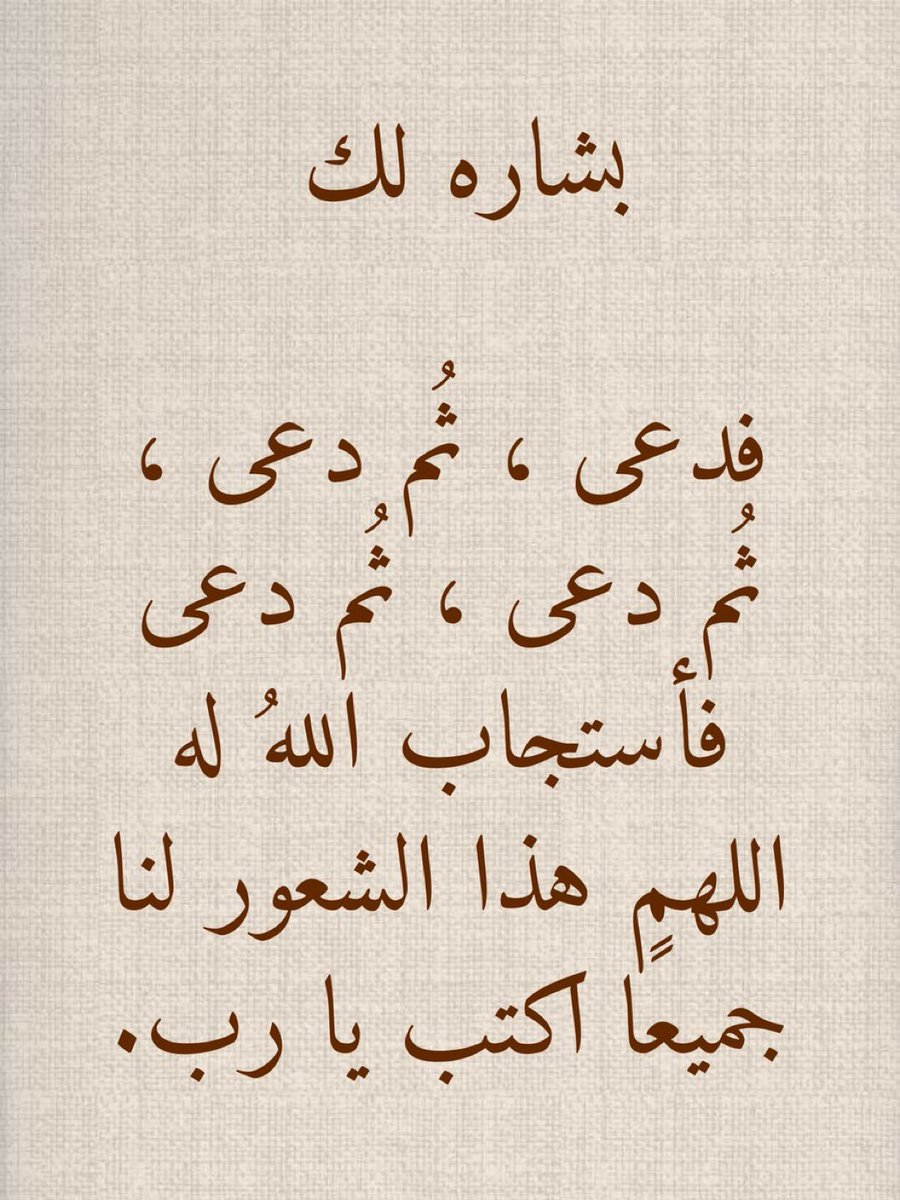 بشاره لك
فدعى ، ثُم دعى ،
ثُم دعى ، ثُم دعى
فأستجاب اللهُ له
اللهمٍ هذا الشعور لنا
جميعاً اكتب يا رب.